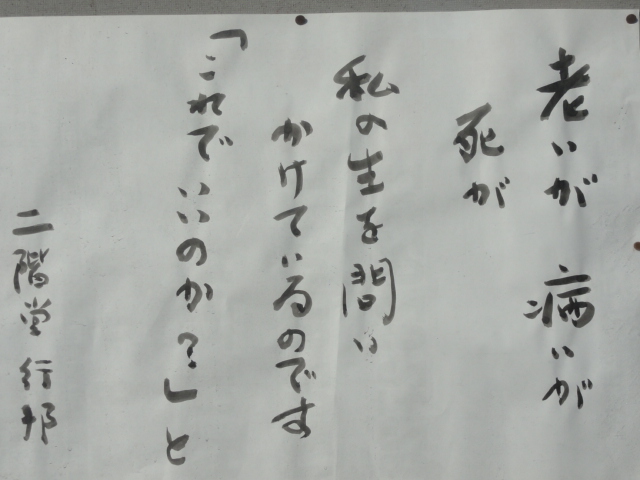 老いが 病いが
死が
私の生を問い
かけているのです
「これでいいのか?」と
二階堂行邦